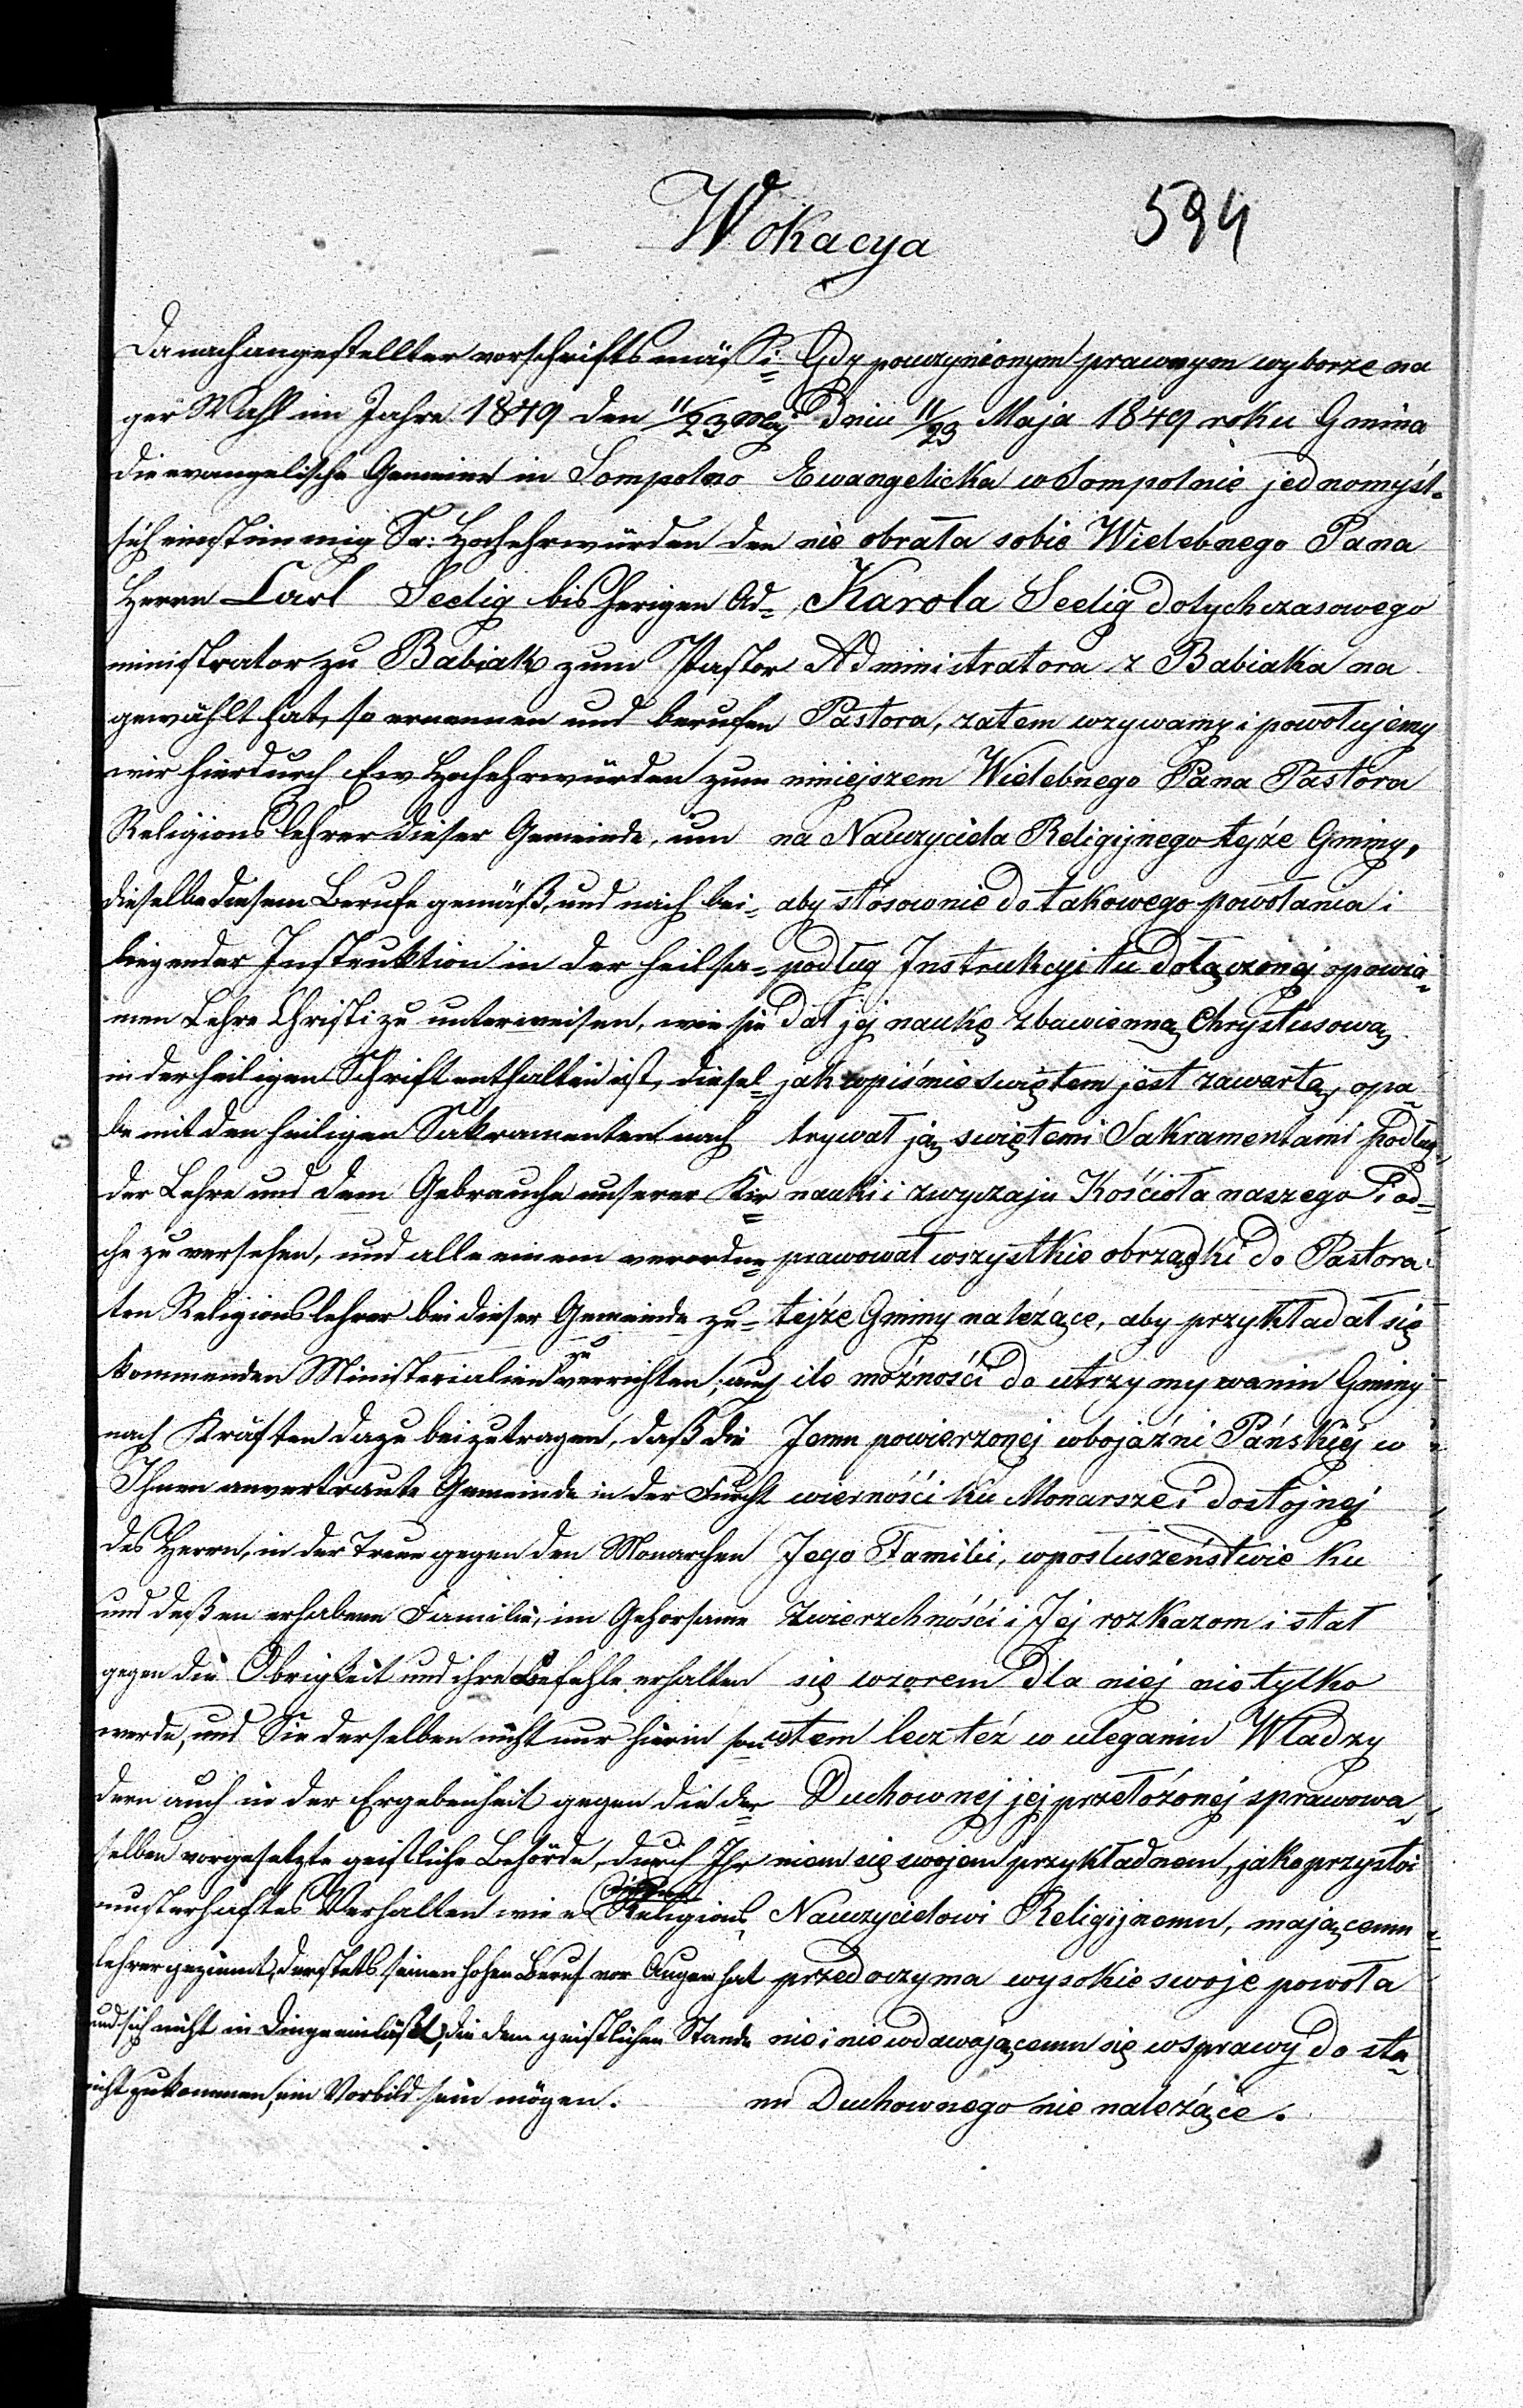 Wokacya
594
Da nach angestellter vorschriftsmäßi=
ger Wahl im Jahre 1849 den 11/23 May
die evangelische Gemeine in Sompolno
sich einstimmig Sr: Hochehrwürden den
Herrn Carl Seelig bisherigen Ad=
ministrator zu Babiak zum Pastor
gewählt hat, so ernennen und berufen
wir hierdurch Ew Hochehrwürden zum
Religionslehrer dieser Gemeinde, um
dieselbe diesem Berufe gemäß, und nach bei=
liegender Instruktion in der heilsa=
men Lehre Christi zu unterweisen, wie sie
in der heiligen Schrift enthalten ist, diesel=
be mit den heiligen Sakramenten nach
der Lehre und dem Gebrauche unserer Kir=
che zu versehen, und alle einem verordne=
ten Religionslehrer bei dieser Gemeinde zu=
kommenden Ministerialien zu verrichten; auch
nach Kräften dazu beizutragen, daß die
Ihnen anvertraute Gemeinde in der Furcht
des Herrn, in der Treue gegen den Monarchen
und deßen erhabene Familie, im Gehorsame
gegen die Obrigkeit und ihre Befehle erhalten
werde, und Sie derselben nicht nur hierin son
dern auch in der Ergebenheit gegen die der=
selben vorgesetzte geistliche Behörde, durch Ihr
musterhaftes Verhalten wie es Religions
lehrer geziemt, der stets seinen hohen Beruf vor Augen hat
und sich nicht in Dinge einläßt, die dem geistlichen Stande
nicht zukommen, ein Vorbild sein mögen.
Gdy po uczynionym prawnym wyborze na
dniu 11/23 Maja 1849 roku Gmina
Ewangelicka w Sompolnie jednomyśl=
nie obrała sobie Wielebnego Pana
Karola Seelig dotychczasowego
Administratora z Babiaka na
Pastora, zatem wzywamy i powołujemy
niniejszem Wielebnego Pana Pastora
na Nauczyciela Religijnego tejże Gminy,
aby stósownie do takowego powołania i
podług Instrukcyi tu dołączonej opowia=
dał jej naukę zbawienną Chrystusową
jak w piśmie świętem jest zawartą, opa=
trywał ją świętemi Sakramentami podług
nauki i zwyczaju Kościoła naszego i od=
prawował wszystkie obrządki do Pastora
tejże Gminy należące, aby przykładał się
ile możności do utrzymywania Gminy
Jemu powierzonej w bojaźni Pańskiej w
wierności ku Monarsze i dostojnej
Jego Familii, w posłuszeństwie ku
Zwierzchności i Jej rozkazom i stał
się wzorem dla niej nie tylko
w tem lecz też w uleganiu Władzy
Duchownej jej przełożonej sprawowa=
niem się swojem przykładnem, jako przystoi
Nauczycielowi Religijnemu, mającemu
przed oczyma wysokie swoje powoła
nie i nie wdawającemu się w sprawy do sta=
nu Duchownego nie należące.